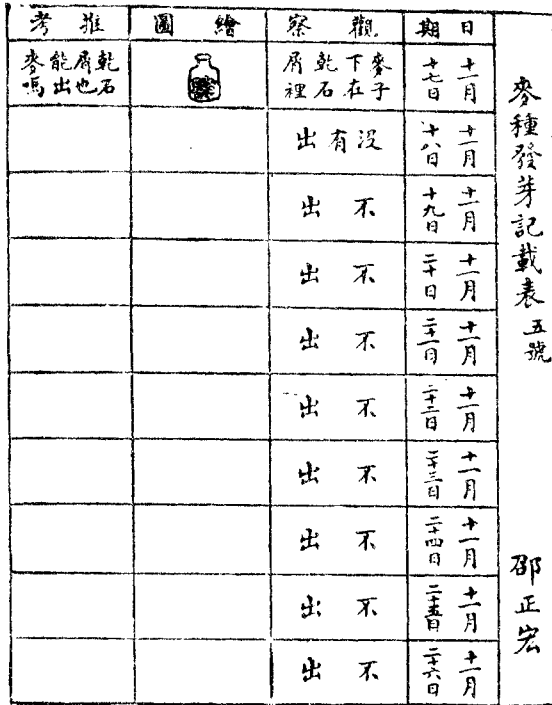 麥種發芽記載表 五號 邵正宏
日期
觀察
繪圖
推考
十一月
十七日
麥子
下在
乾石
屑裡
乾石
屑也
能出
麥嗎
十一月
十八日
没有出
十一月
十九日
不出
十一月
二十日
不出
十一月
二十一日
不出
十一月
二十二日
不出
十一月
二十三日
不出
十一月
二十四日
不出
十一月
二十五日
不出
十一月
二十六日
不出